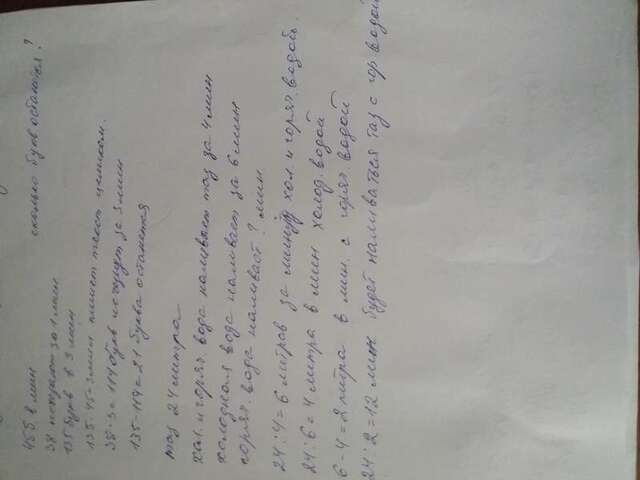 45 б в мин сколько букв останется?
38 исчезают за 1 мин
135 букв в 3 мин
135:45=3 мин пишет текст целиком.
38·3=114 букв исчезнут за 3 мин
135-114=21 буква останется
таз 24 литра
хол. и горяч. вода наливает таз за 4 мин
холодная вода наливает за 6 мин
горяч. вода наливает ? мин
24:4=6 литров за минуту хол. и горяч. водой.
24:6=4 литра в мин холод. водой
6-4=2 литра в мин. с горяч. водой
24:2=12 мин будет наливаться таз с гор водой